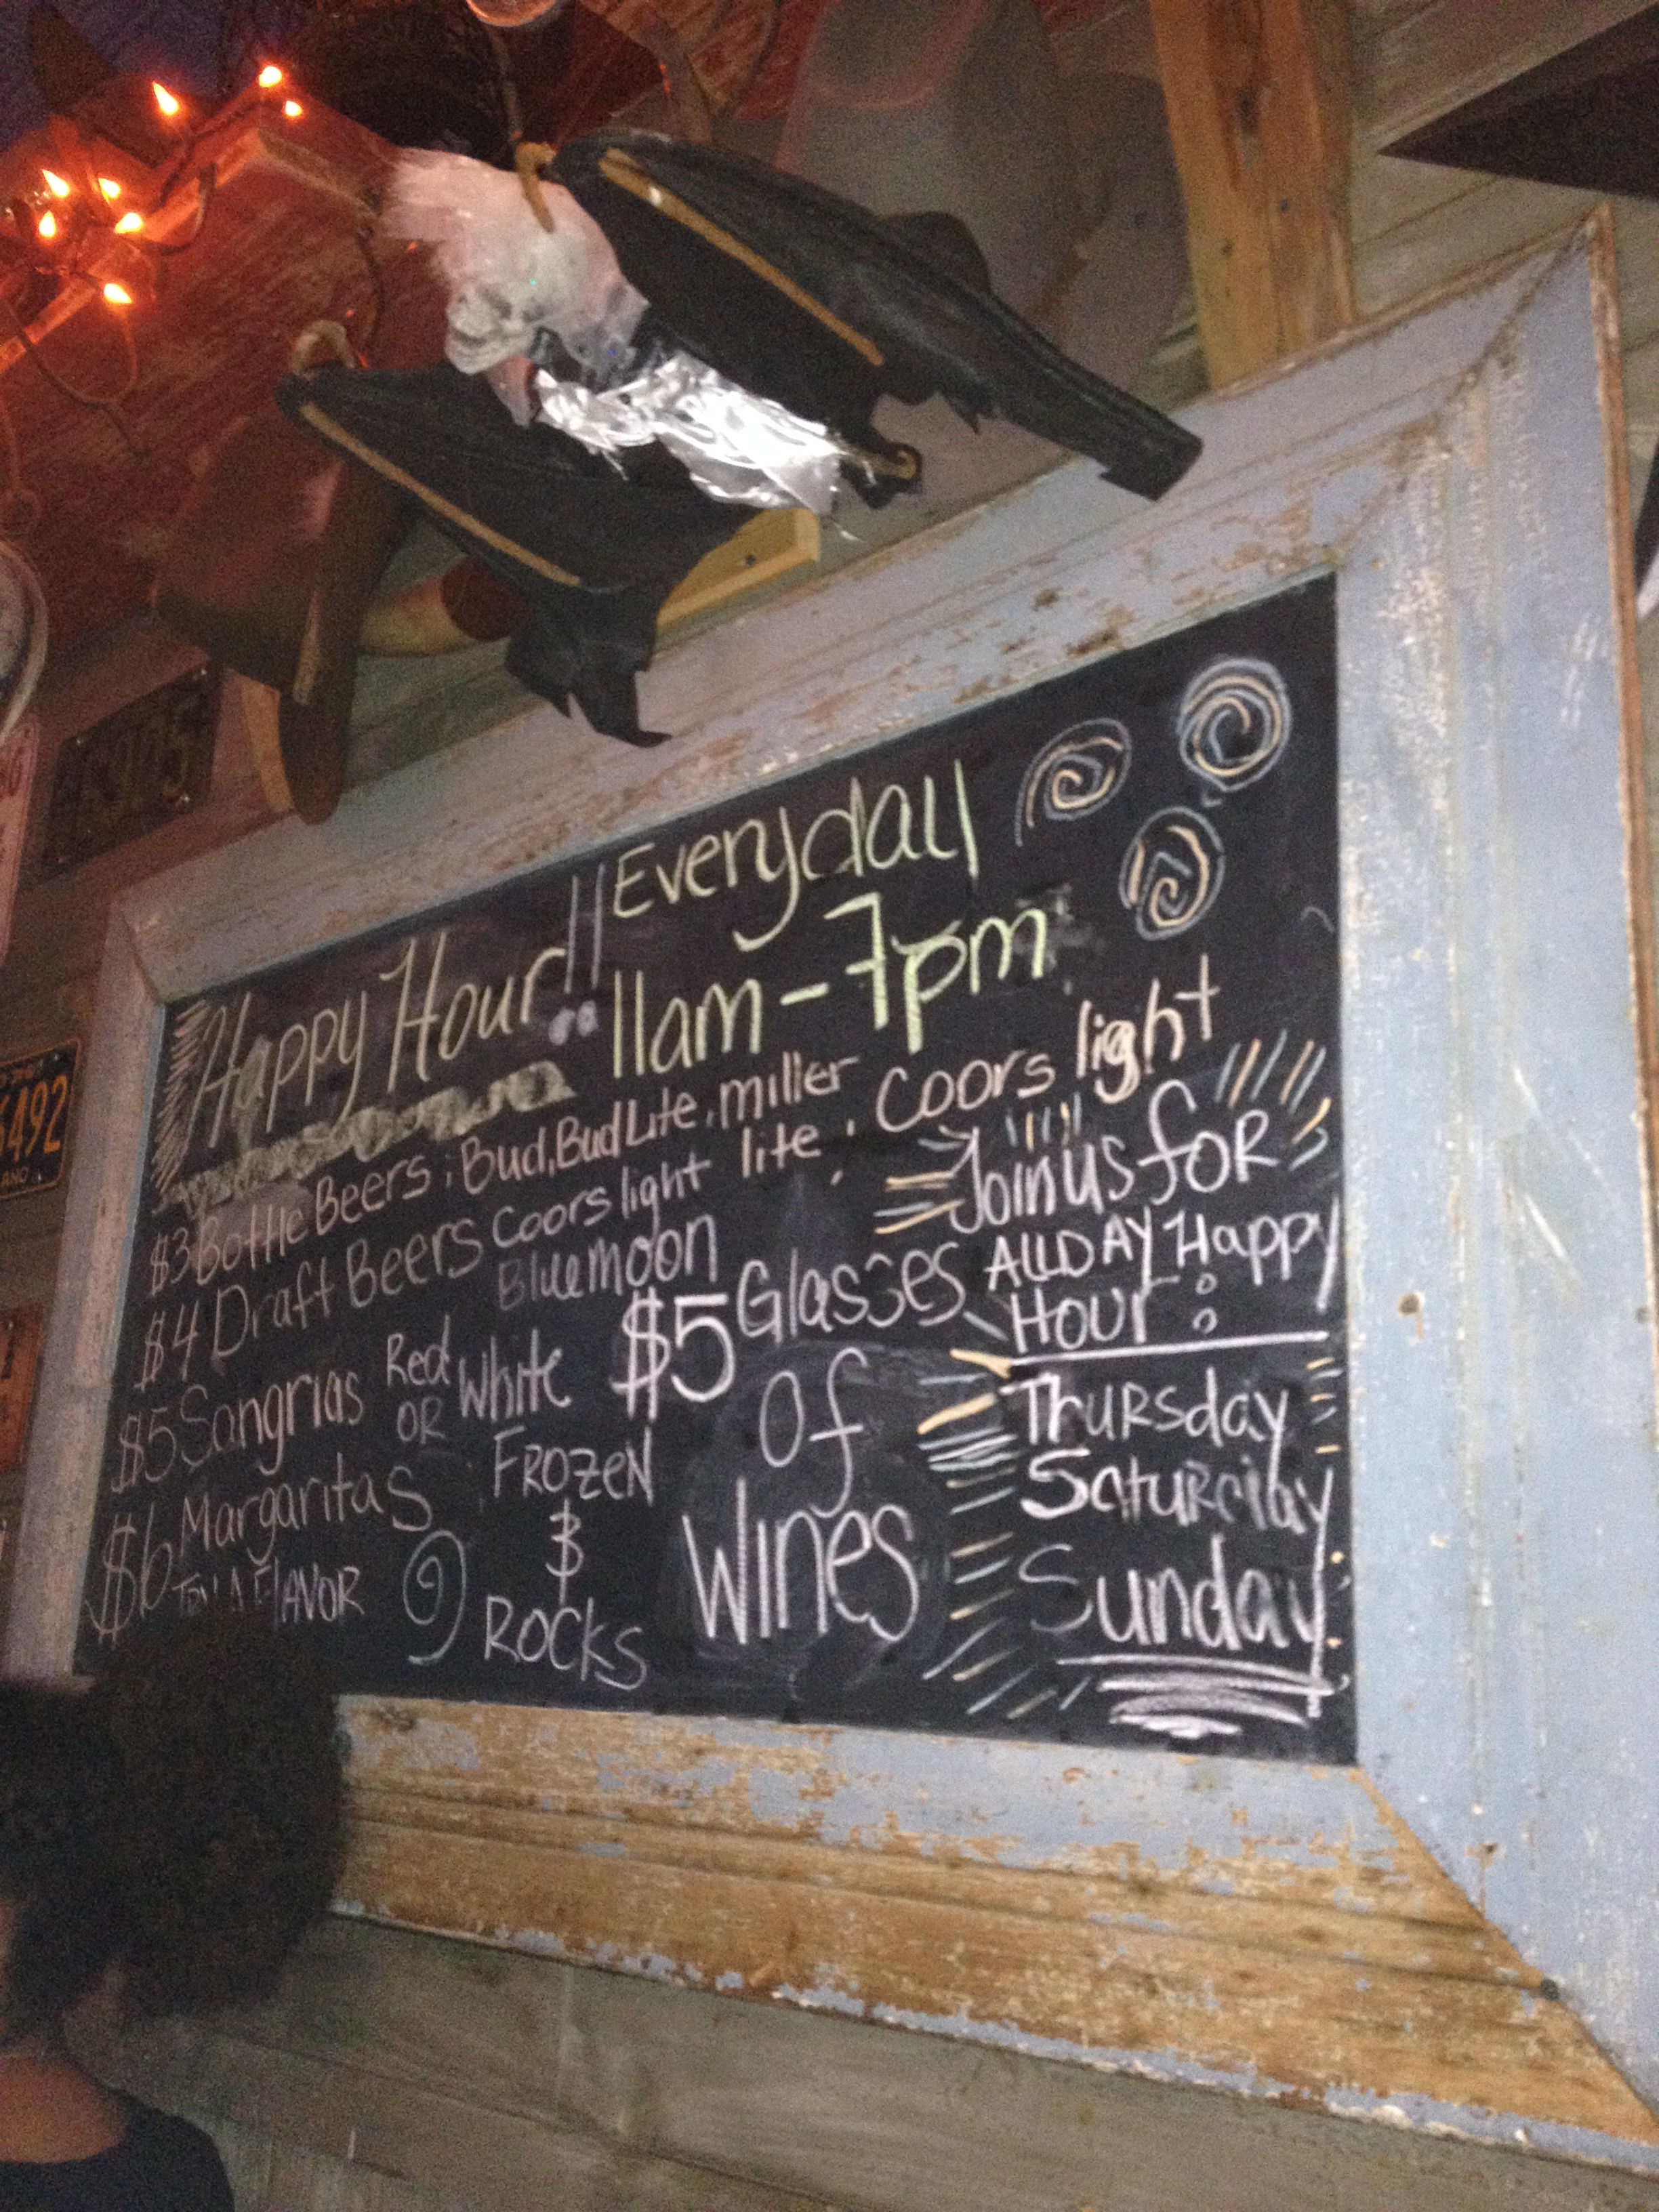 Happy Hour!! Everyday
11am-7pm
$3 Bottle Beers: Bud, Bud Lite, miller
lite, Coors light
$4 Draft Beers Coors light
Blue moon
$5 Sangrias Red
OR White
$6 Margaritas FROZEN
$
ROCKS
FLAVOR
$5 Glasses
of
Wines
Join us foR
ALL DAY Happy
HOUR:
THURSday
SATURday
Sunday
6492